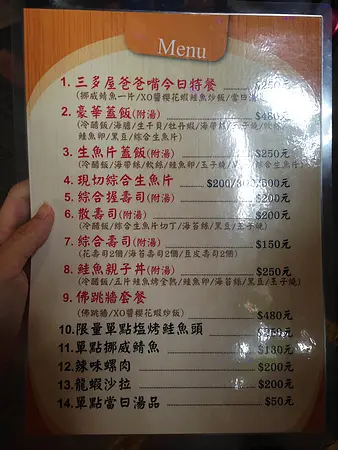 Menu
1. 三多屋爸爸嘴今日特餐 $250元
(挪威鯖魚一片/XO醬櫻花蝦鮭魚炒飯/當日湯
2. 豪華蓋飯(附湯) $480元
(冷醋飯/海膽/生干貝/牡丹蝦/海帶絲/玉子燒/軟絲/
鮭魚卵/黑豆/綜合生魚片)
3. 生魚片蓋飯(附湯) $250元
(冷醋飯/海帶絲/軟絲/鮭魚卵/玉子燒/
4. 現切綜合生魚片 $200/300/500元
5. 綜合握壽司(附湯) $200元
6. 散壽司(附湯) $200元
(冷醋飯/綜合生魚片切丁/海苔絲/黑豆/玉子燒)
7. 綜合壽司(附湯) $150元
(花壽司2個/海苔壽司2個/豆皮壽司2個)
8. 鮭魚親子丼(附湯) $250元
(冷醋飯/五片鮭魚烤全熟/鮭魚卵/海苔絲/黑豆/玉子燒)
9. 佛跳牆套餐
(佛跳牆/XO醬櫻花蝦炒飯) $480元
10.限量單點塩烤鮭魚頭
11.單點挪威鯖魚 $130元
12.辣味螺肉 $200元
13.龍蝦沙拉 $200元
14.單點當日湯品 $50元